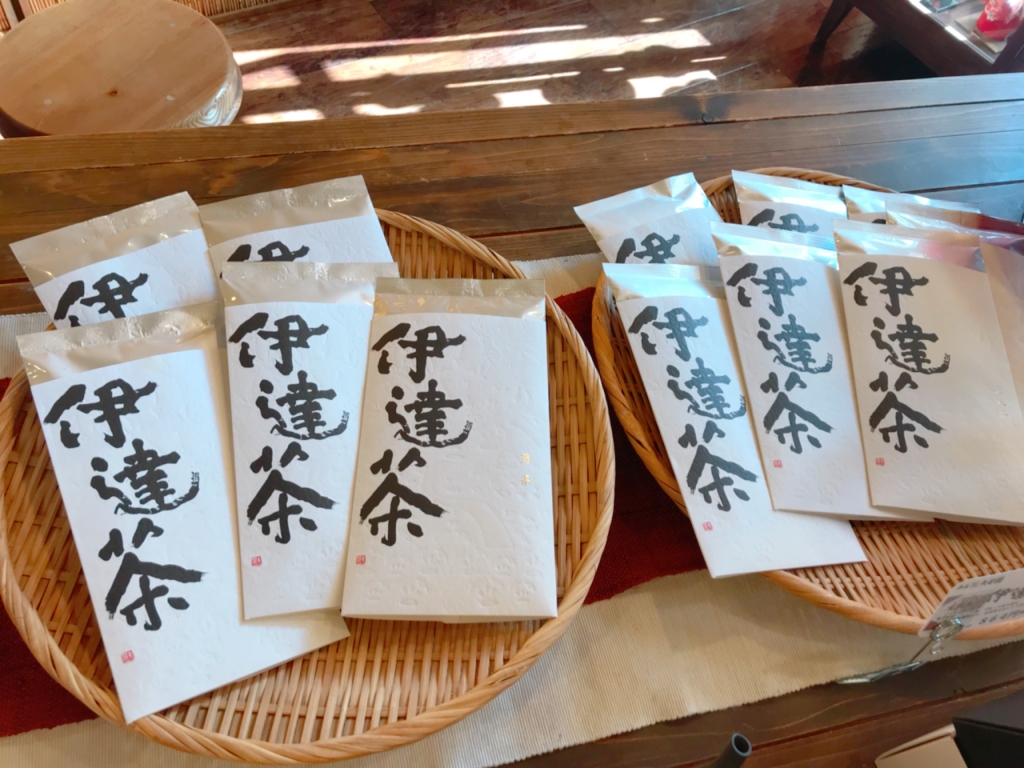 伊
伊
伊達茶
伊達茶
伊達茶
伊
伊
伊達茶
伊達茶
伊達茶